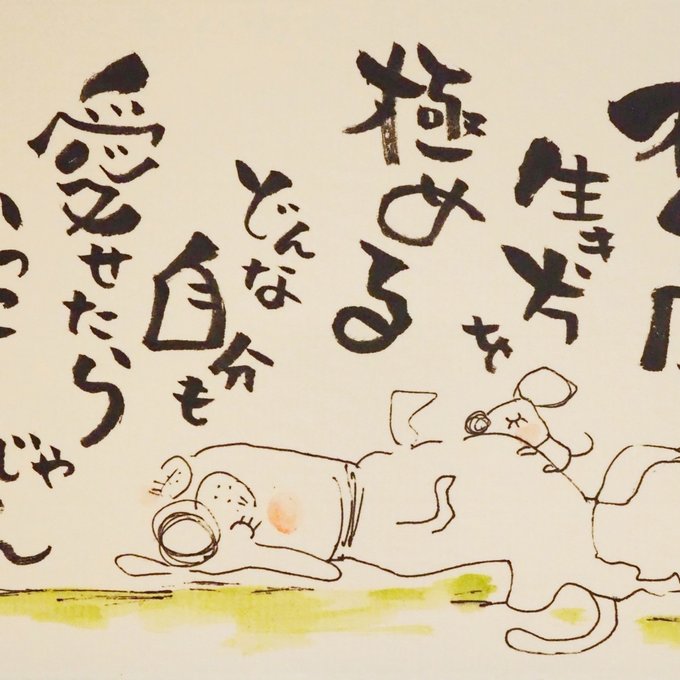 生き方を
極める
どんな
自分も
愛せたら
っこ
じゃん